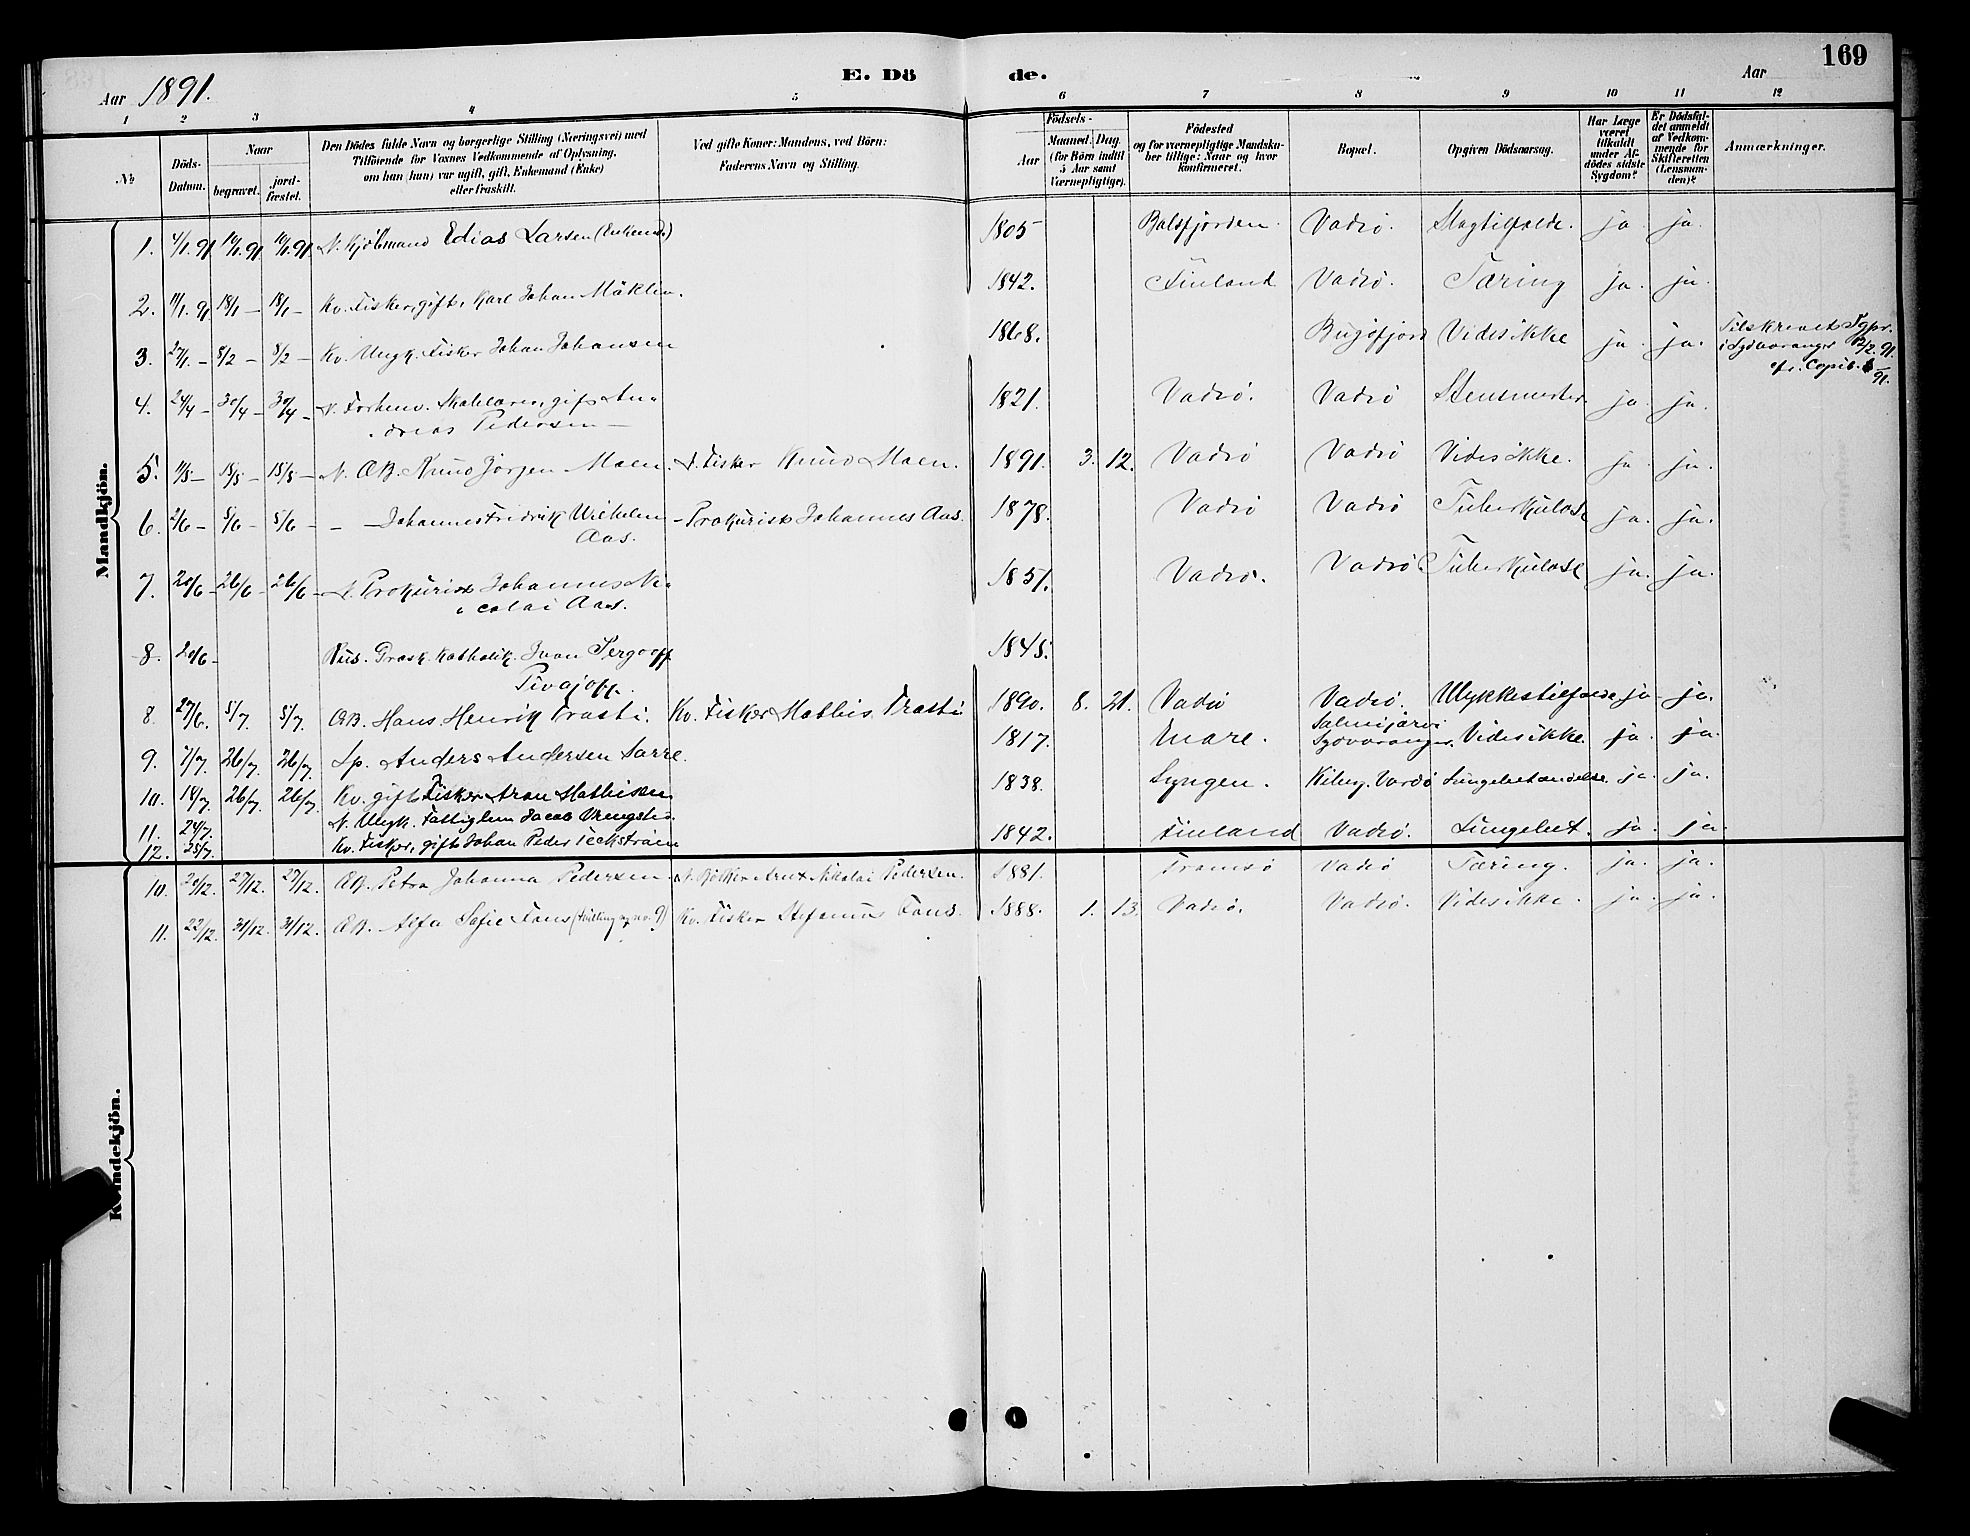 169
Aar 1891. E. Dö de. Aar
1 2 3 4 5 6 7 8 9 10 11 12
№ Döds-Datum. Naar begravet. jord-fæstet. Den Dödes fulde Navn og borgerlige Stilling (Næringsvei) med Tilföiende for Voxnes Vedkommende af Oplysning, om han (hun) var ugift, gift, Enkemand (Enke) eller fraskilt. Ved gifte Koner: Mandens, ved Börn: Faderens Navn og Stilling. Födsels- Aar Maaned. Dag. (for Börn indtil 5 Aar samt Værnepligtige). Födested og for værnepligtige Mandskaber tillige: Naar og hvor konfirmeret. Bopæl. Opgiven Dödsaarsag. Har Læge været tilkaldt under Afdödes sidste Sygdom? Er Dödsfaldet anmeldt af Vedkommende for Skifteretten (Lensmanden)? Anmærkninger.
Mandkjön.
1. 4/1.91 10/1.91 10/1.91 N. Kjöbmand Edias Larsen (Enkemd.) 1805 Balsfjorden. Vadsø. Slagtilfælde. ja. ja.
2. 11/1.91 18/1 - 18/1 - Kv. Fisker, gift, Karl Johan Mäklin. 1842. Finland Vadsø. Tæring ja. ja.
3. 27/1 - 8/2 - 8/2 - Kv. Ungk. Fisker Johan Johansen 1868. Bugøfjord Vides ikke ja. ja. Tilskrevet Sgpr. i Sydvaranger 12/2.91.
cfr. Copib.
4. 24/4 - 30/4 - 30/4 - N. Forhenv. Skolelærer, gift An-
dreas Pedersen - 1821. Vadsø. Vadsø Stensmerter ja. ja.
5. 11/5 - 15/5 - 15/5 - N. ÆB. Knud Jørgen Moen. N. Fisker Knud Moen. 1891. 3. 12. Vadsø Vadsø Vides ikke. ja. ja.
6. 2/6 - 5/6 - 5/6 - - - Johannes Fridrik Wilhelm
Aas. - Prokurist Johannes Aas. 1878. Vadsø Vadsø Tuberkulose ja. ja.
7. 20/6 - 26/6 - 26/6 - N. Prokurist Johannes Ni-
colai Aas. 1851. Vadsø. Vadsø. Tuberkulose ja. ja.
8. 20/6 - Rus. Græsk. Katholik. Ivan 1845.
8. 27/6. 5/7. 5/7. ÆB. Hans Henrik Trasti. Kv. Fisker Mathis Trasti 1890. 8. 21. Vadsø Vadsø. Ulykkestilfælde ja. ja.
9. 7/7. 26/7. 26/7. Lp. Anders Andersen Sarre. 1817. Enare. Salmijärvi Sydvaranger. Vides ikke. ja. ja.
10. 18/7. 26/7. 26/7. Kv. gift Fisker Aron Mathisen 1838. Lyngen. Kiberg. Vardø Lungebetændelse ja. ja.
11. 24/7. N. Ungk. Fattiglem Jacob
12. 25/7. Kv. Fisker, gift Johan Peder 1842. Finland Vadsø. Lungebet. ja. ja.
Kvindekjön.
10. 20/12. 27/12. 27/12. ÆB. Petra Johanna Pedersen. N. Bødker Arnt Nikolai Pedersen. 1881. Tromsø Vadsø Tæring. ja. ja.
11. 22/12. 31/12. 31/12. ÆB. Alfa Sofie Fors (Tvilling no. 9) Kv. Fisker Stefanus Fors. 1888. 1. 13. Vadsø. Vadsø. Vides ikke. ja. ja.